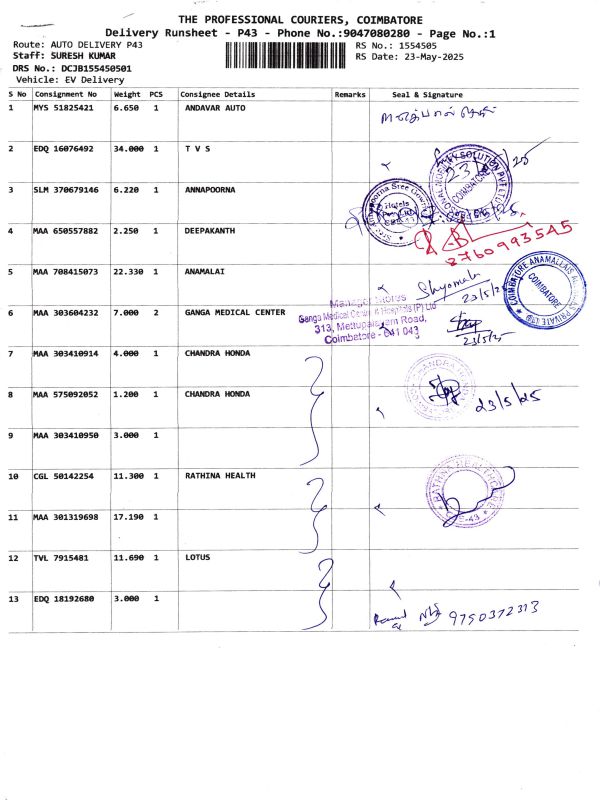 THE PROFESSIONAL COURIERS, COIMBATORE
Delivery Runsheet - P43 - Phone No.:9047080280 - Page No.:1
Route: AUTO DELIVERY P43
RS No.: 1554505
Staff: SURESH KUMAR
RS Date: 23-May-2025
DRS No.: DCJB155450501
Vehicle: EV Delivery
S No Consignment No Weight PCS Consignee Details Remarks Seal & Signature
1 MYS 51825421 6.650 1 ANDAVAR AUTO
2 EDQ 16076492 34.000 1 T V S
3 SLM 370679146 6.220 1 ANNAPOORNA
4 MAA 650557882 2.250 1 DEEPAKANTH
8760993545
5 MAA 708415073 22.330 1 ANAMALAI
Shyamala
23/5/25
COIMBATORE ANAMALLAIS PRIVATE LTD
COIMBATORE
6 MAA 303604232 7.000 2 GANGA MEDICAL CENTER
Manager Stores
Ganga Medical Centre & Hospitals (P) Ltd
313, Mettupalayam Road,
Coimbatore - 641 043
23/5/25
7 MAA 303410914 4.000 1 CHANDRA HONDA
8 MAA 575092052 1.200 1 CHANDRA HONDA
23/5/25
9 MAA 303410950 3.000 1
10 CGL 50142254 11.300 1 RATHINA HEALTH
11 MAA 301319698 17.190 1
12 TVL 7915481 11.690 1 LOTUS
13 EDQ 18192680 3.000 1
9750372313